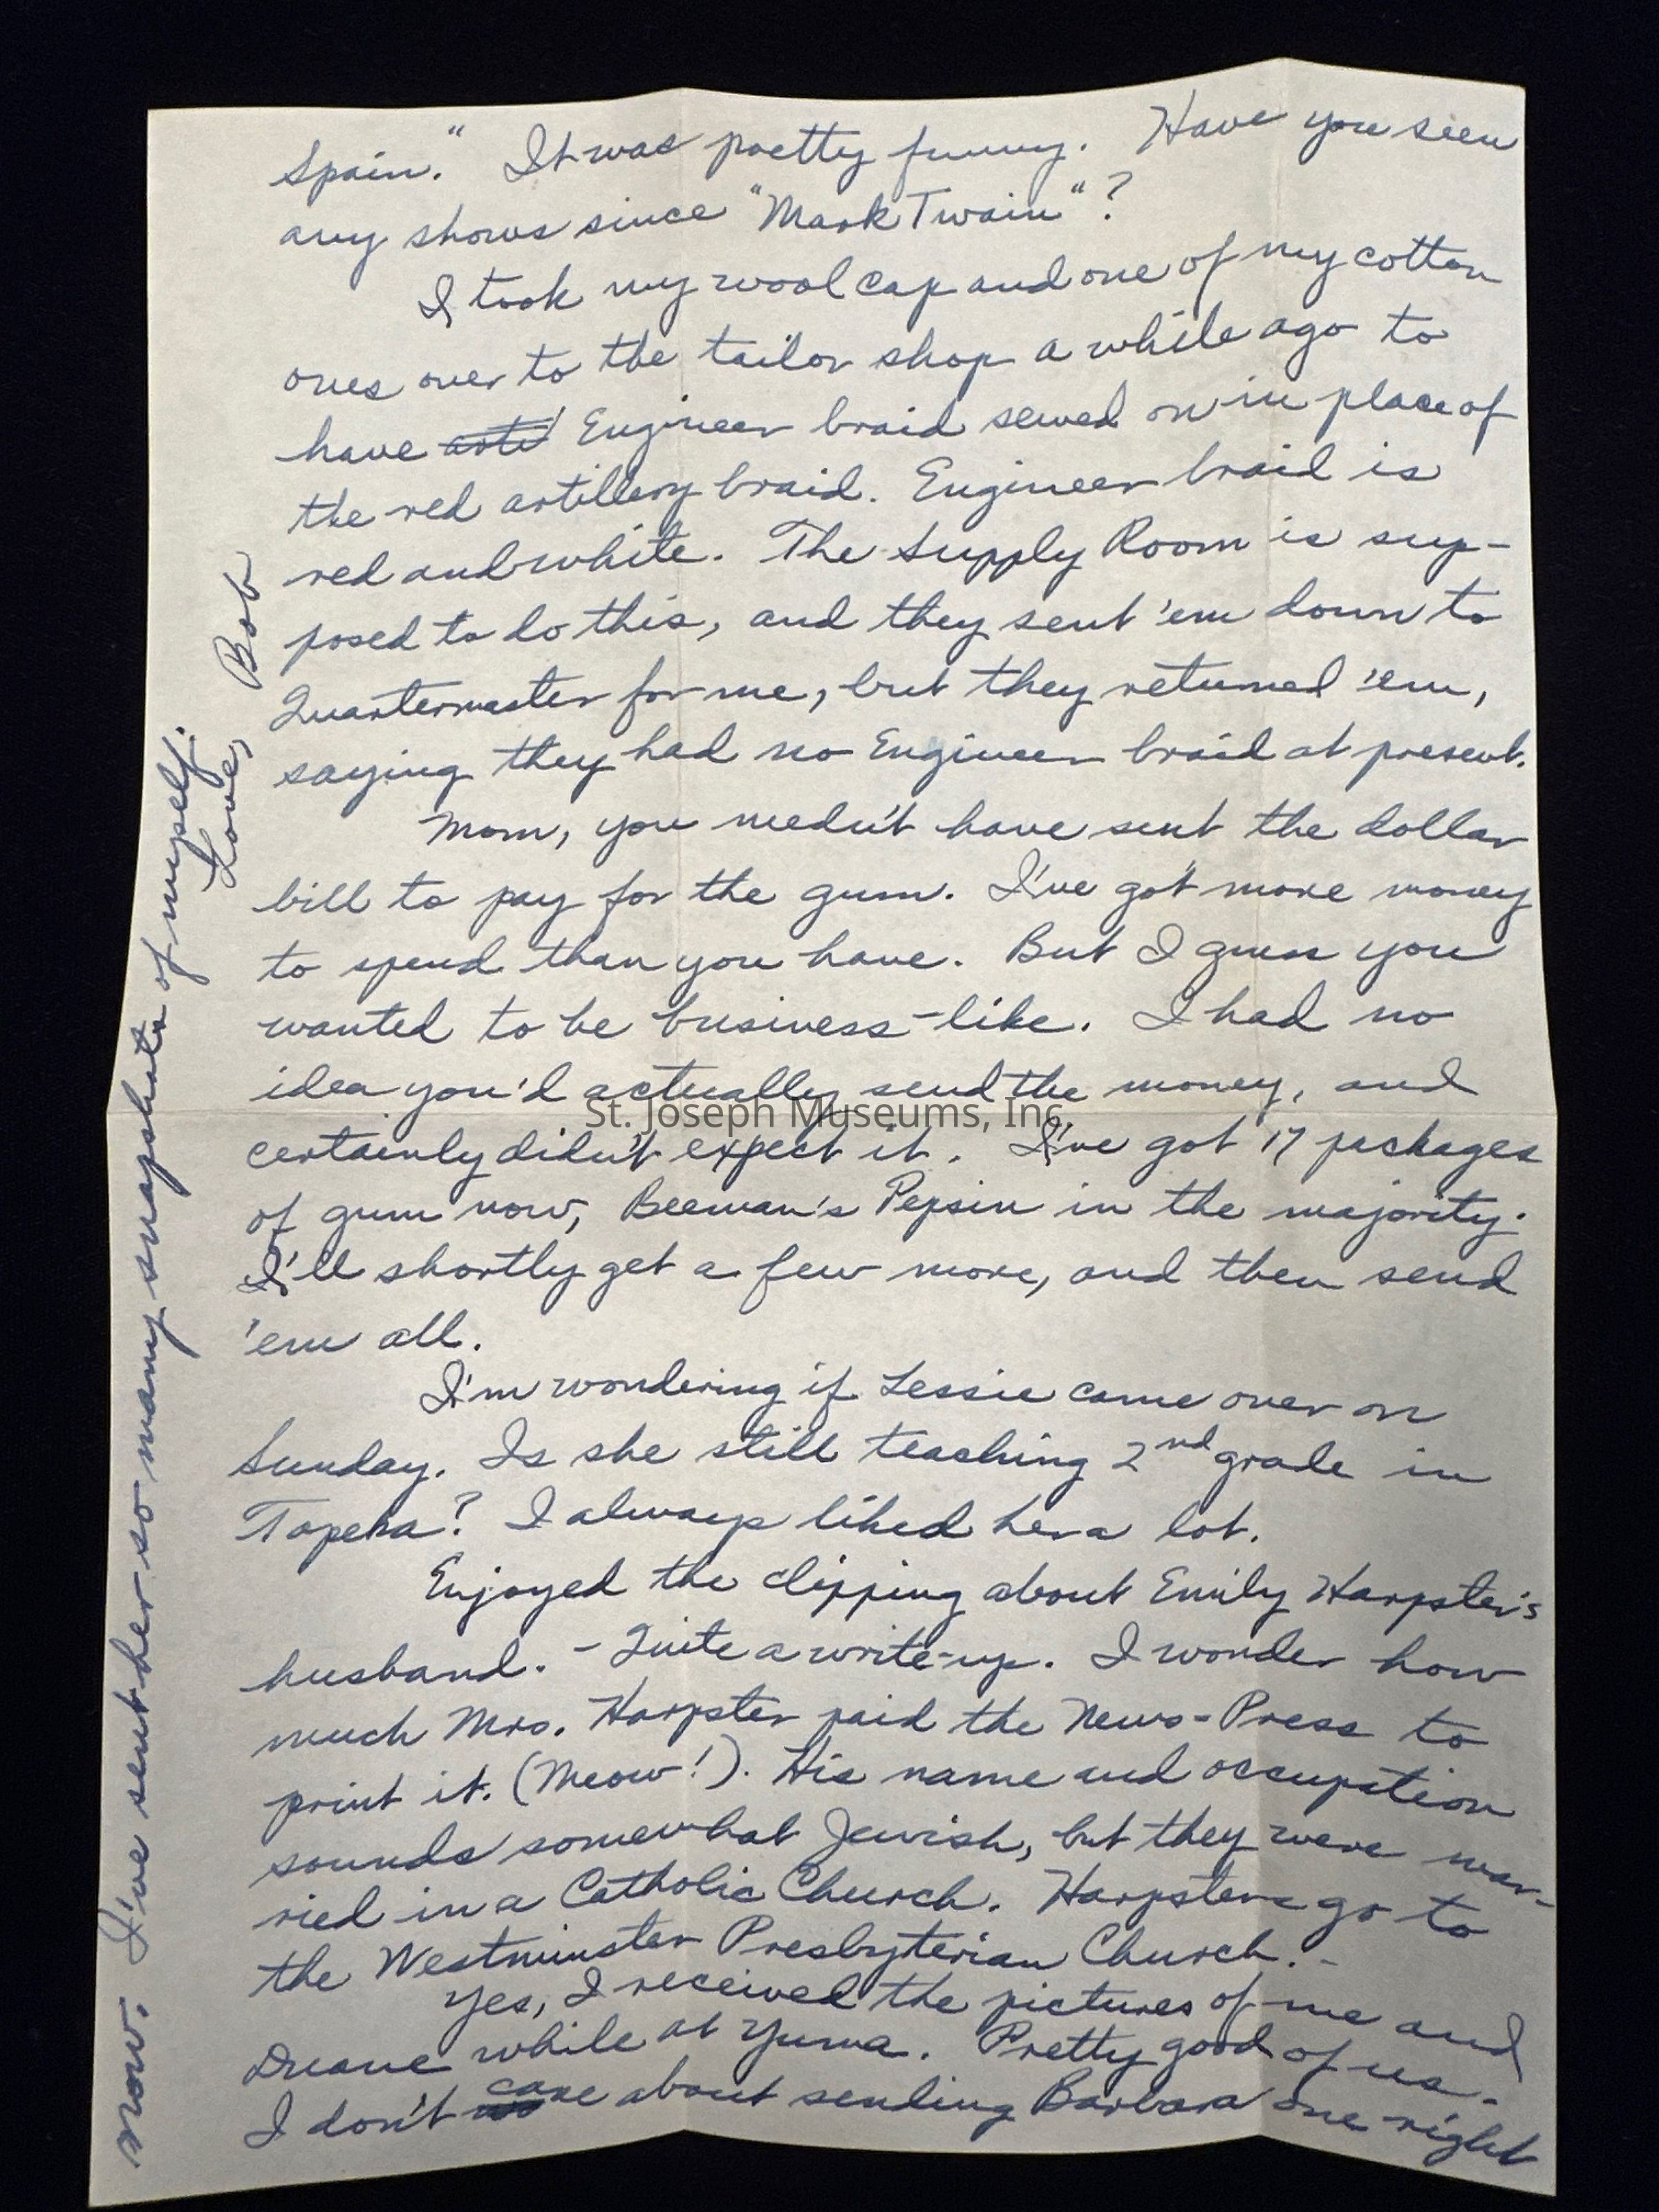 Spain." It was pretty funny. Have you seen
any shows since "Mark Twain"?
I took my wool cap and one of my cotton
ones over to the tailor shop a while ago to
have arti Engineer braid sewed on in place of
the red artillery braid. Engineer braid is
red and white. The Supply Room is sup-
posed to do this, and they sent 'em down to
Quartermaster for me, but they returned 'em,
saying they had no Engineer braid at present.
Mom, you needn't have sent the dollar
bill to pay for the gum. I've got more money
to spend than you have. But I guess you
wanted to be business-like. I had no
idea you'd actually send the money, and
St. Joseph Museums, Inc.
certainly didn't expect it. I've got 17 packages
of gum now, Beeman's Pepsin in the majority.
I'll shortly get a few more, and then send
'em all.
I'm wondering if Lessie came over on
Sunday. Is she still teaching 2nd grade in
Topeka? I always liked her a lot.
Enjoyed the clipping about Emily Harpster's
husband. - Quite a write-up. I wonder how
much Mrs. Harpster paid the News-Press to
print it. (Meow!). His name and occupation
sounds somewhat Jewish, but they were mar-
ried in a Catholic Church. Harpsters go to
the Westminster Presbyterian Church. -
Yes, I received the pictures of me and
Duane while at Yuma. Pretty good of us. -
I don't care about sending Barbara one right
now. I've sent her so many snapshots of myself.
Love, Bob